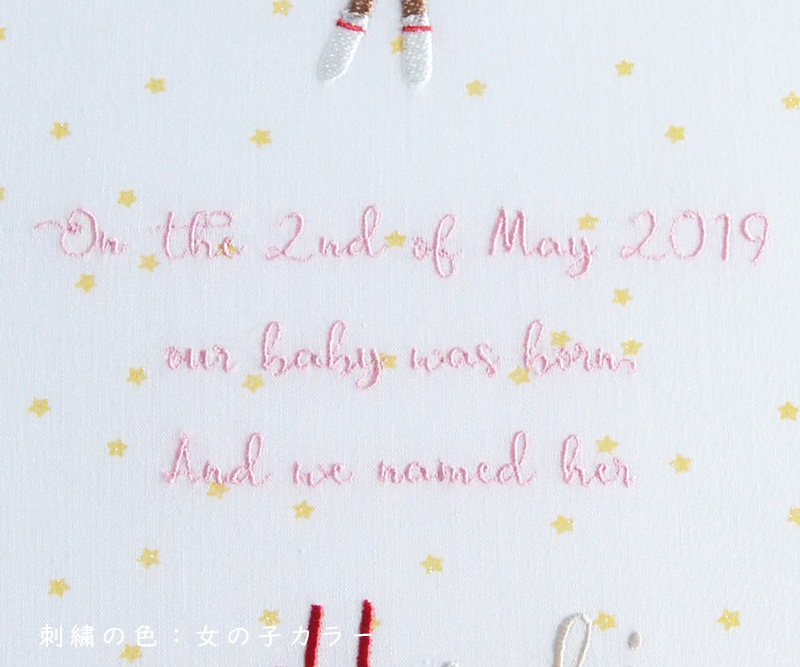 On the 2nd of May 2019
our baby was born.
And we named her
刺繍の色：女の子カラー